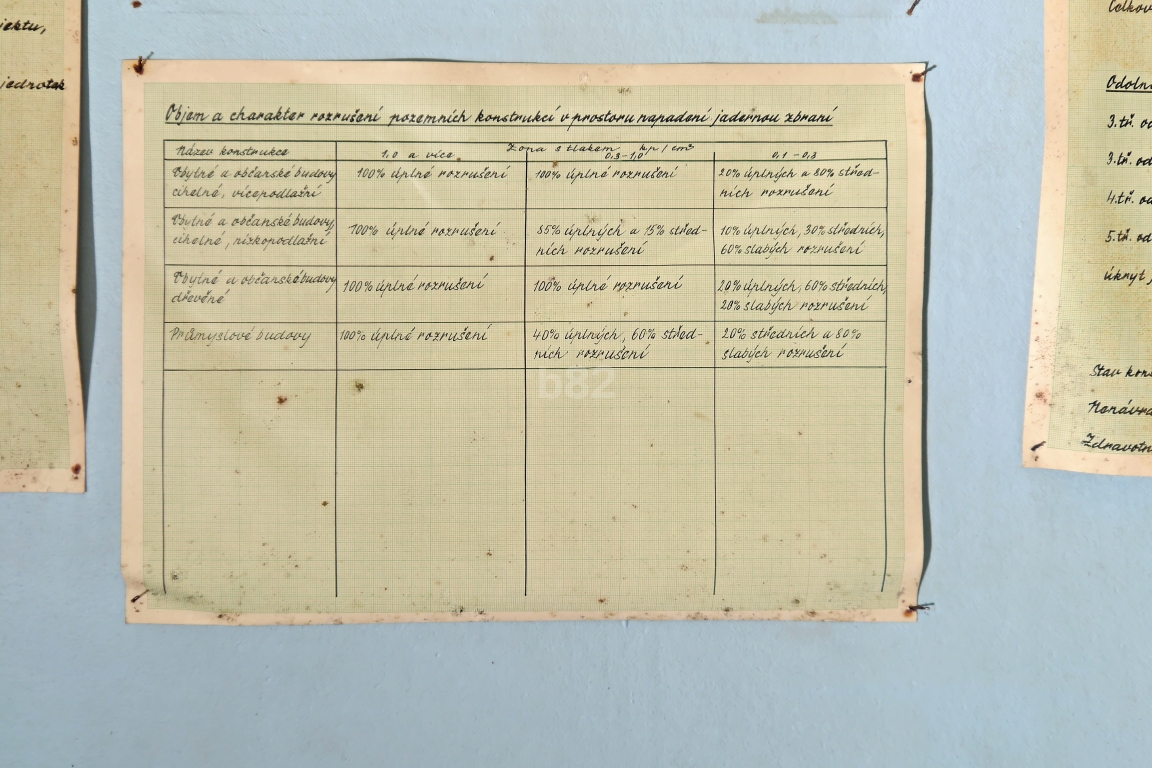 jektu,
jednotek
Objem a charakter rozrušení pozemních konstrukcí v prostoru napadení jadernou zbraní
Název konstrukce
Zóna s tlakem kp/cm²
1,0 a více
0,3-1,0
0,1-0,3
Obytné a občanské budovy
cihelné, vícepodlažní
100% úplné rozrušení
100% úplné rozrušení
20% úplných a 80% střed-
ních rozrušení
Obytné a občanské budovy
cihelné, nízkopodlažní
100% úplné rozrušení
85% úplných a 15% střed-
ních rozrušení
10% úplných, 30% středních,
60% slabých rozrušení
Obytné a občanské budovy
dřevěné
100% úplné rozrušení
100% úplné rozrušení
20% úplných, 60% středních,
20% slabých rozrušení
Průmyslové budovy
100% úplné rozrušení
40% úplných, 60% střed-
ních rozrušení
20% středních a 80%
slabých rozrušení
b82
Celkov
Odoln
3.tř. od
3.tř. od
4.tř. od
5.tř. od
úkryt
Stav kon
Nenávra
Zdravotn